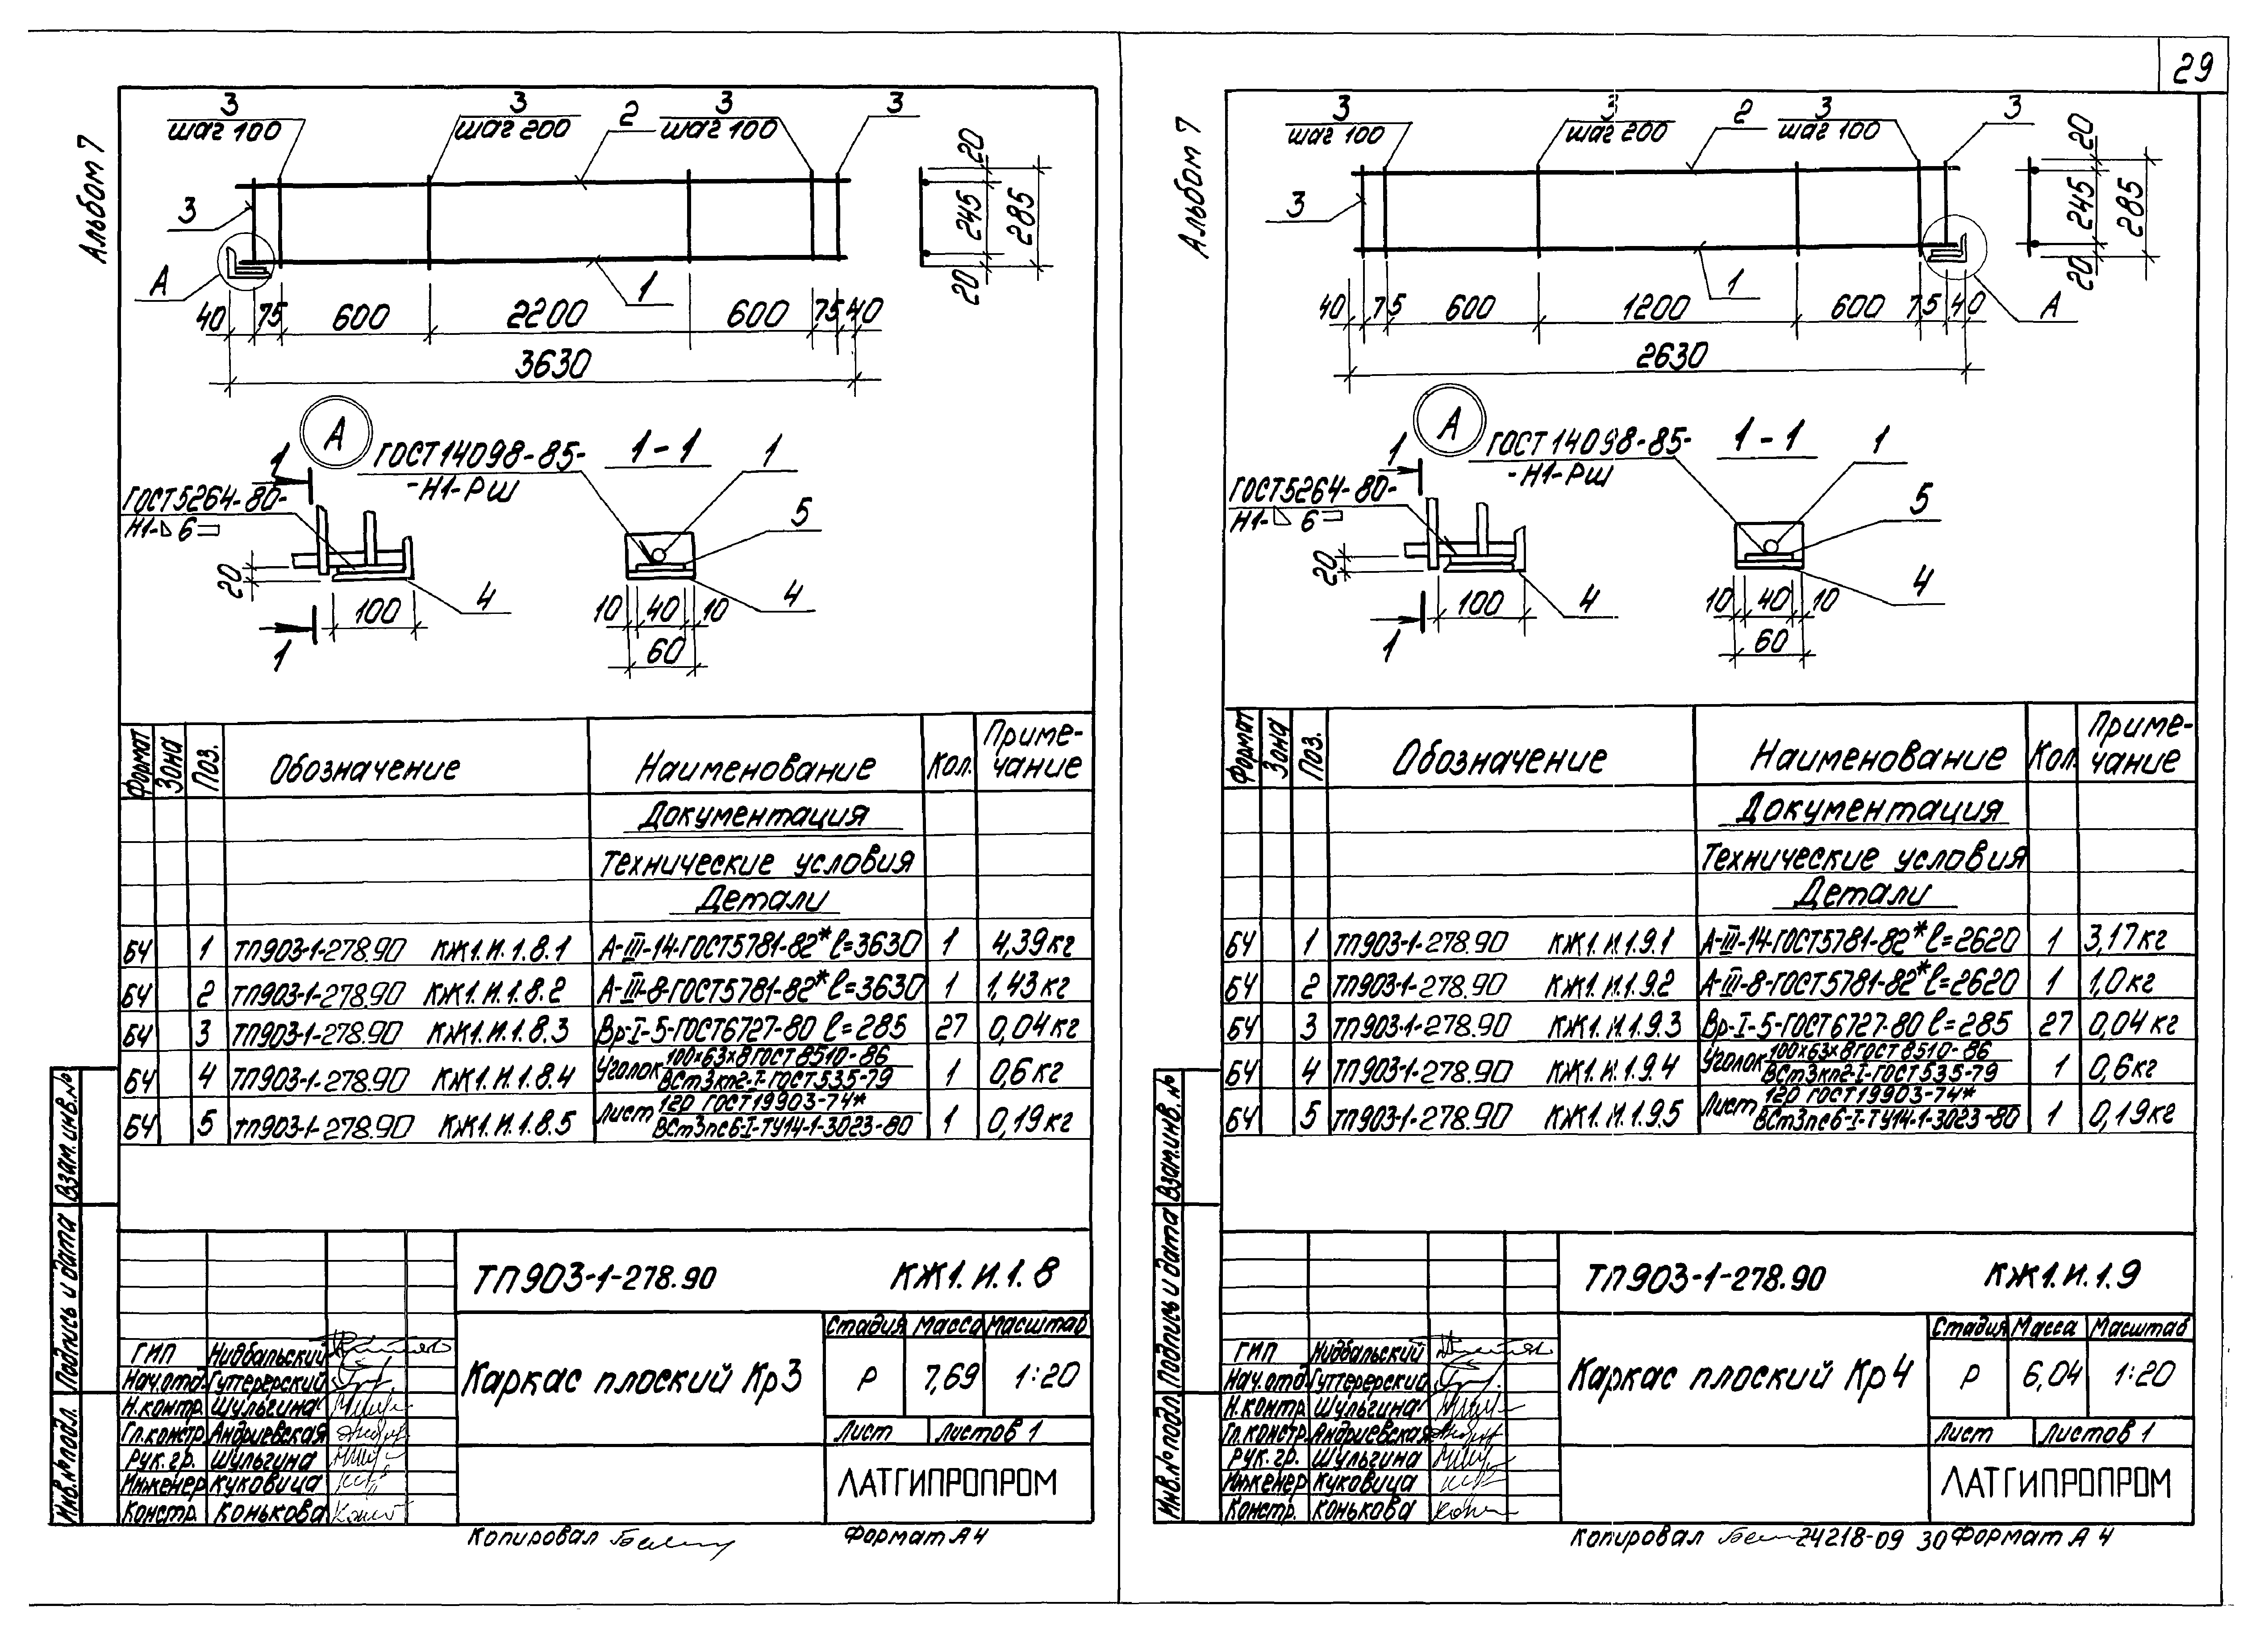 29
Альбом 7
3
шаг 100
3
шаг 200
2
3
шаг 100
3
3
А
1
20
245
285
20
40 75 600 2200 600 75 40
3630
А
1
ГОСТ 14098-85-
-Н1-РШ
1-1
1
ГОСТ 5264-80-
Н1-◺6
5
20
100
4
10 40 10
4
1
60
Формат Зона Поз. Обозначение Наименование Кол. Приме-
чание
Документация
Технические условия
Детали
БЧ 1 ТП903-1-278.90 КЖ1.И.1.8.1 А-III-14-ГОСТ5781-82* l=3630 1 4,39кг
БЧ 2 ТП903-1-278.90 КЖ1.И.1.8.2 А-III-8-ГОСТ5781-82* l=3630 1 1,43кг
БЧ 3 ТП903-1-278.90 КЖ1.И.1.8.3 Вр-I-5-ГОСТ6727-80 l=285 27 0,04кг
БЧ 4 ТП903-1-278.90 КЖ1.И.1.8.4 Уголок 100х63х8 ГОСТ 8510-86 1 0,6кг
ВСт3кп2-I-ГОСТ535-79
БЧ 5 ТП903-1-278.90 КЖ1.И.1.8.5 Лист 120 ГОСТ19903-74* 1 0,19кг
ВСт3пс6-I-ТУ14-1-3023-80
Взам.инв.№
Подпись и дата
Инв.№ подл.
ТП903-1-278.90 КЖ1.И.1.8
ГИП Нидбальский
Нач.отд. Гуттерерский
Н.контр. Шульгина
Гл.констр. Андриевская
Рук.гр. Шульгина
Инженер Куковица
Констр. Конькова
Каркас плоский Кр3
Стадия Масса Масштаб
Р 7,69 1:20
Лист Листов 1
ЛАТГИПРОПРОМ
Копировал Формат А4
Альбом 7
3
шаг 100
3
шаг 200
2
3
шаг 100
3
3
1
А
20
245
285
20
40 75 600 1200 600 75 40
2630
А
1
ГОСТ 14098-85-
-Н1-РШ
1-1
1
ГОСТ 5264-80-
Н1-◺6
5
20
100
4
10 40 10
4
1
60
Формат Зона Поз. Обозначение Наименование Кол. Приме-
чание
Документация
Технические условия
Детали
БЧ 1 ТП903-1-278.90 КЖ1.И.1.9.1 А-III-14-ГОСТ5781-82* l=2620 1 3,17кг
БЧ 2 ТП903-1-278.90 КЖ1.И.1.9.2 А-III-8-ГОСТ5781-82* l=2620 1 1,0кг
БЧ 3 ТП903-1-278.90 КЖ1.И.1.9.3 Вр-I-5-ГОСТ6727-80 l=285 27 0,04кг
БЧ 4 ТП903-1-278.90 КЖ1.И.1.9.4 Уголок 100х63х8 ГОСТ 8510-86 1 0,6кг
ВСт3кп2-I-ГОСТ535-79
БЧ 5 ТП903-1-278.90 КЖ1.И.1.9.5 Лист 120 ГОСТ19903-74* 1 0,19кг
ВСт3пс6-I-ТУ14-1-3023-80
Взам.инв.№
Подпись и дата
Инв.№ подл.
ТП903-1-278.90 КЖ1.И.1.9
ГИП Нидбальский
Нач.отд. Гуттерерский
Н.контр. Шульгина
Гл.констр. Андриевская
Рук.гр. Шульгина
Инженер Куковица
Констр. Конькова
Каркас плоский Кр4
Стадия Масса Масштаб
Р 6,04 1:20
Лист Листов 1
ЛАТГИПРОПРОМ
Копировал 24218-09 30 Формат А4